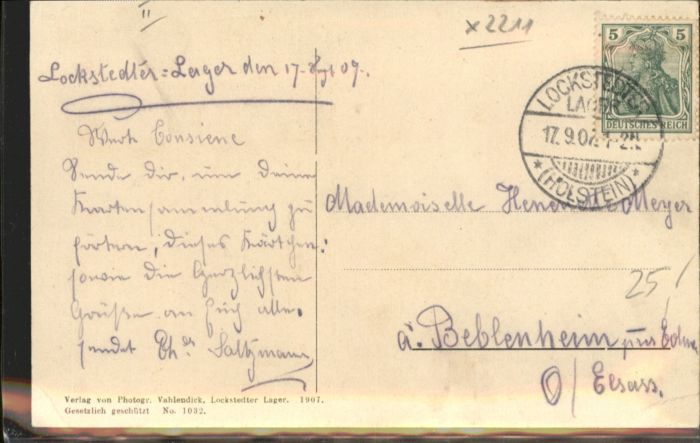 x 2211
5 5
DEUTSCHES REICH
LOCKSTEDTER
LAGER
17.9.07.
* (HOLSTEIN) *
Lockstedter-Lager den 17. Sept 07.
Werte Cousiene
Sende dir, um deine
Kartensammlung zu
fördern, dieses Kärtchen:
sowie die herzlichsten
Grüße an Euch alle.
sendet Ths Saltzmann
Mademoiselle Meyer
25/
à Beblenheim
O/ Elsass.
Verlag von Photogr. Vahlendick, Lockstedter Lager. 1907.
Gesetzlich geschützt No. 1032.